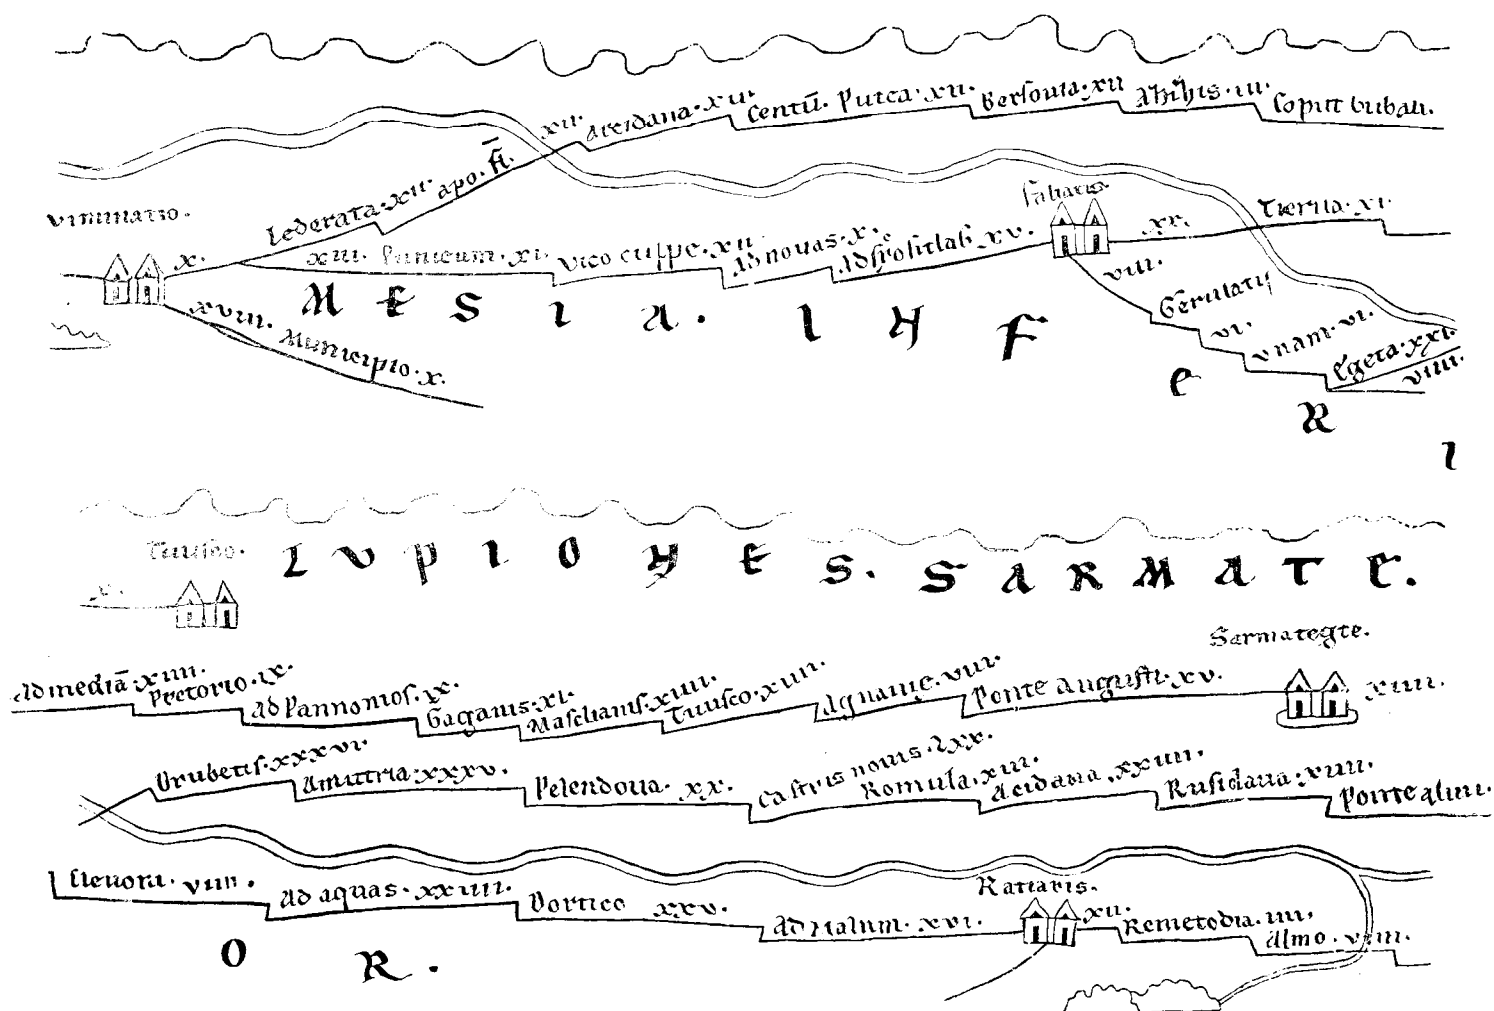 xii. Arcidaua. xii. Centū. Putea. xii. Bersouia. xii Ahihis. iii. Coput bubali.
Viminatio. x. Lederata. xii. apo. fl.
Faliatis. xx. Tierua. xi.
xiii. Punicum. xi. Vico cuppe. xii Ad nouas. x. Ad scrofulas xv. viii. Gerulatis
vi. vnam. vi. Egeta. xxi. viiii.
xviii. Municipio. x.
MESIA. INFERI
Tiuisco. x.
LVPIONES. SARMATE.
Sarmategte.
Ad mediā. xiiii. Pretorio. ix. Ad Pannonios. ix. Gaganis. xi. Masclianis. xiiii. Tiuisco. xiiii. Agnauie. viii. Ponte augusti. xv. xiiii.
Drubetis. xxxvi Amutria. xxxv. Pelendoua. xx. Castris nouis. lxx. Romula. xiii. Acidaua. xxiiii. Rusidaua. xiiii. Ponte aluti.
Cleuora. viiii. Ad aquas. xxiiii. Dortico xxv. Ad Malum. xvi. Ratiaris. xii. Remetodia. iiii. Almo. viiii.
OR.